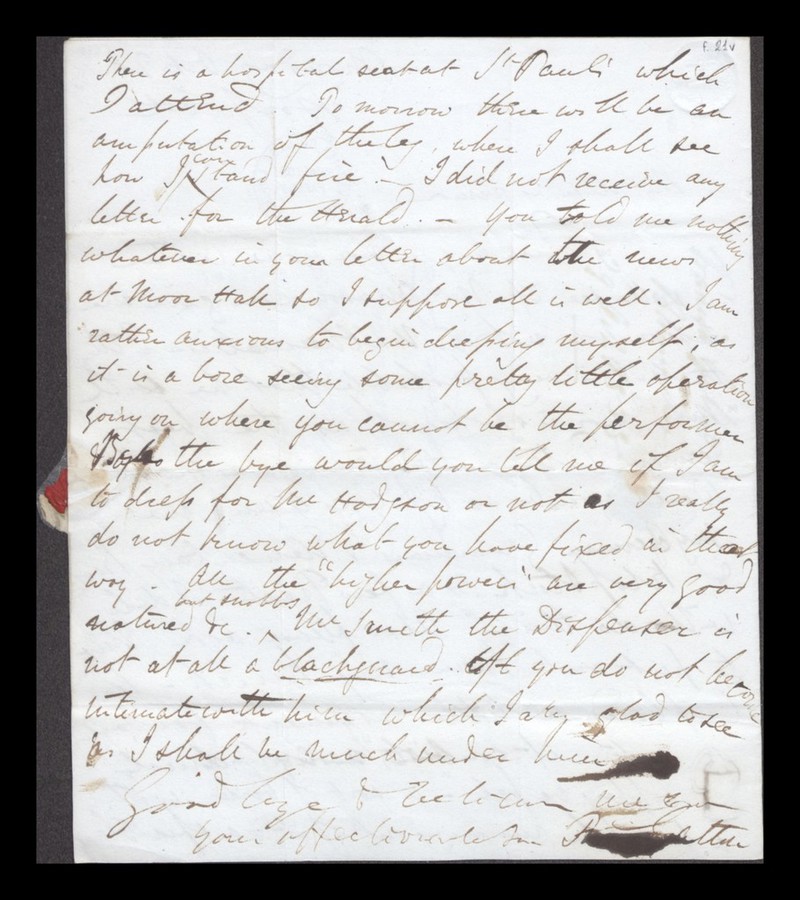 f. 21v
There is a hospital seat at St Paul's which
I attend. To morrow there will be an
amputation of the leg, where I shall see
how I can stand fire. – I did not receive any
letter for the Herald. – You told me nothing
whatever in your letter about the news
at Moor Hall so I suppose all is well. I am
rather anxious to begin dressing myself, as
it is a bore seeing some pretty little operation
going on where you cannot be the performer
By the bye would you tell me if I am
to dress for Mr Hodgson or not as I really
do not know what you have fixed in that
way. All the "higher powers" are very good
but snobbs
natured &c. Mr Smith the Dispenser is
not at all a blackguard. If you do not become
intimate with him which I am glad to see
as I shall be much under him
Good bye & believe me Ever
your affectionate Son